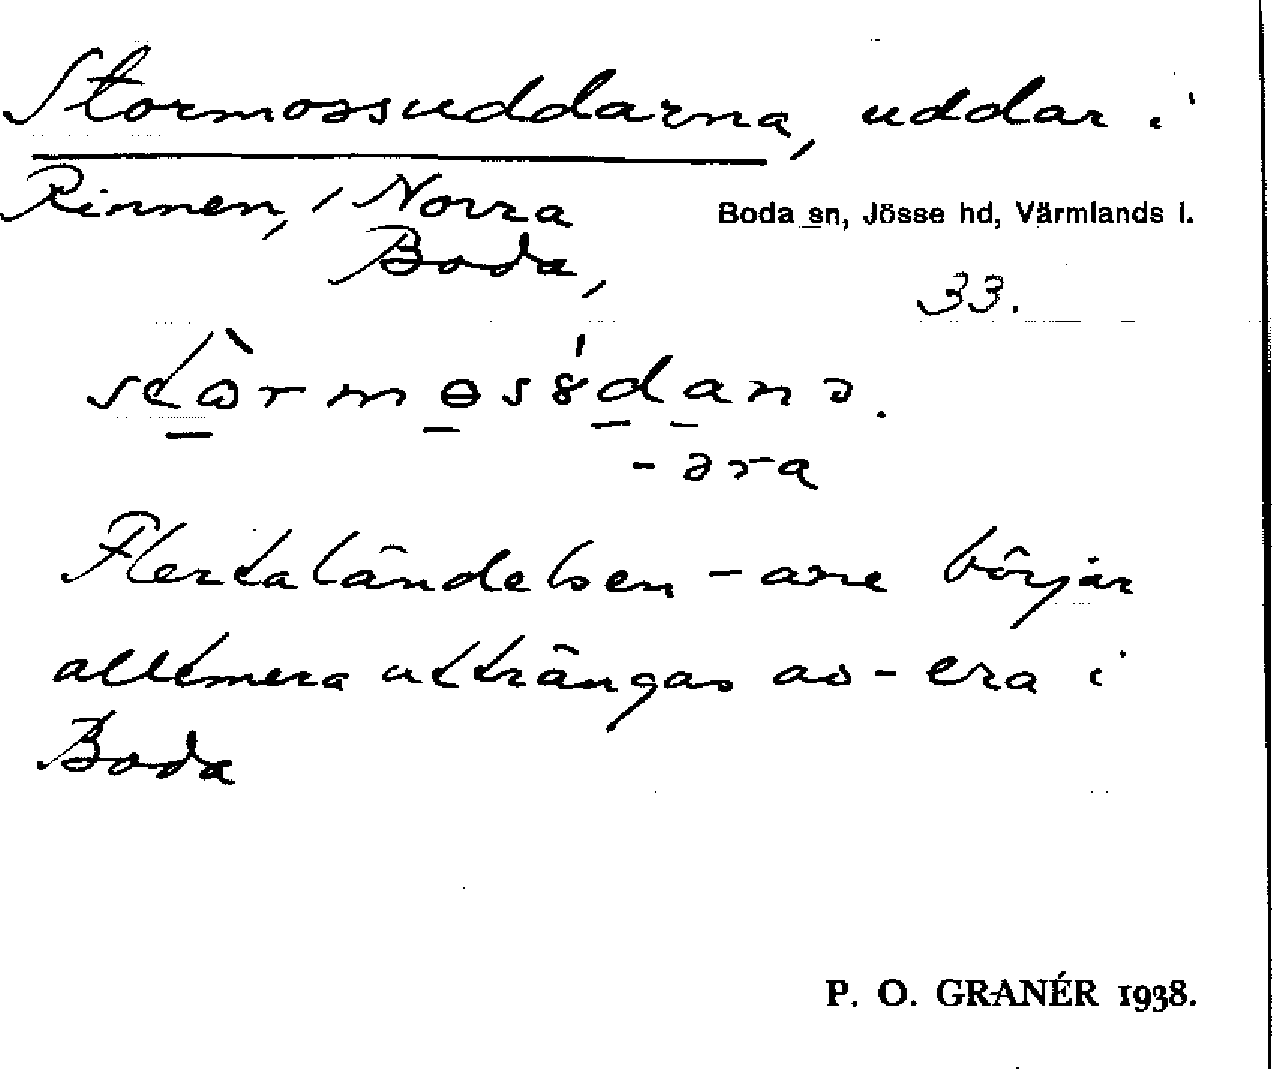 Stormossuddarna, uddar i
Rinnen, i Norra
Boda,
Boda sn, Jösse hd, Värmlands l.
33.
-əra
Flertaländelsen -are börjar
alltmera utträngas av -era i
Boda
P. O. GRANÉR 1938.